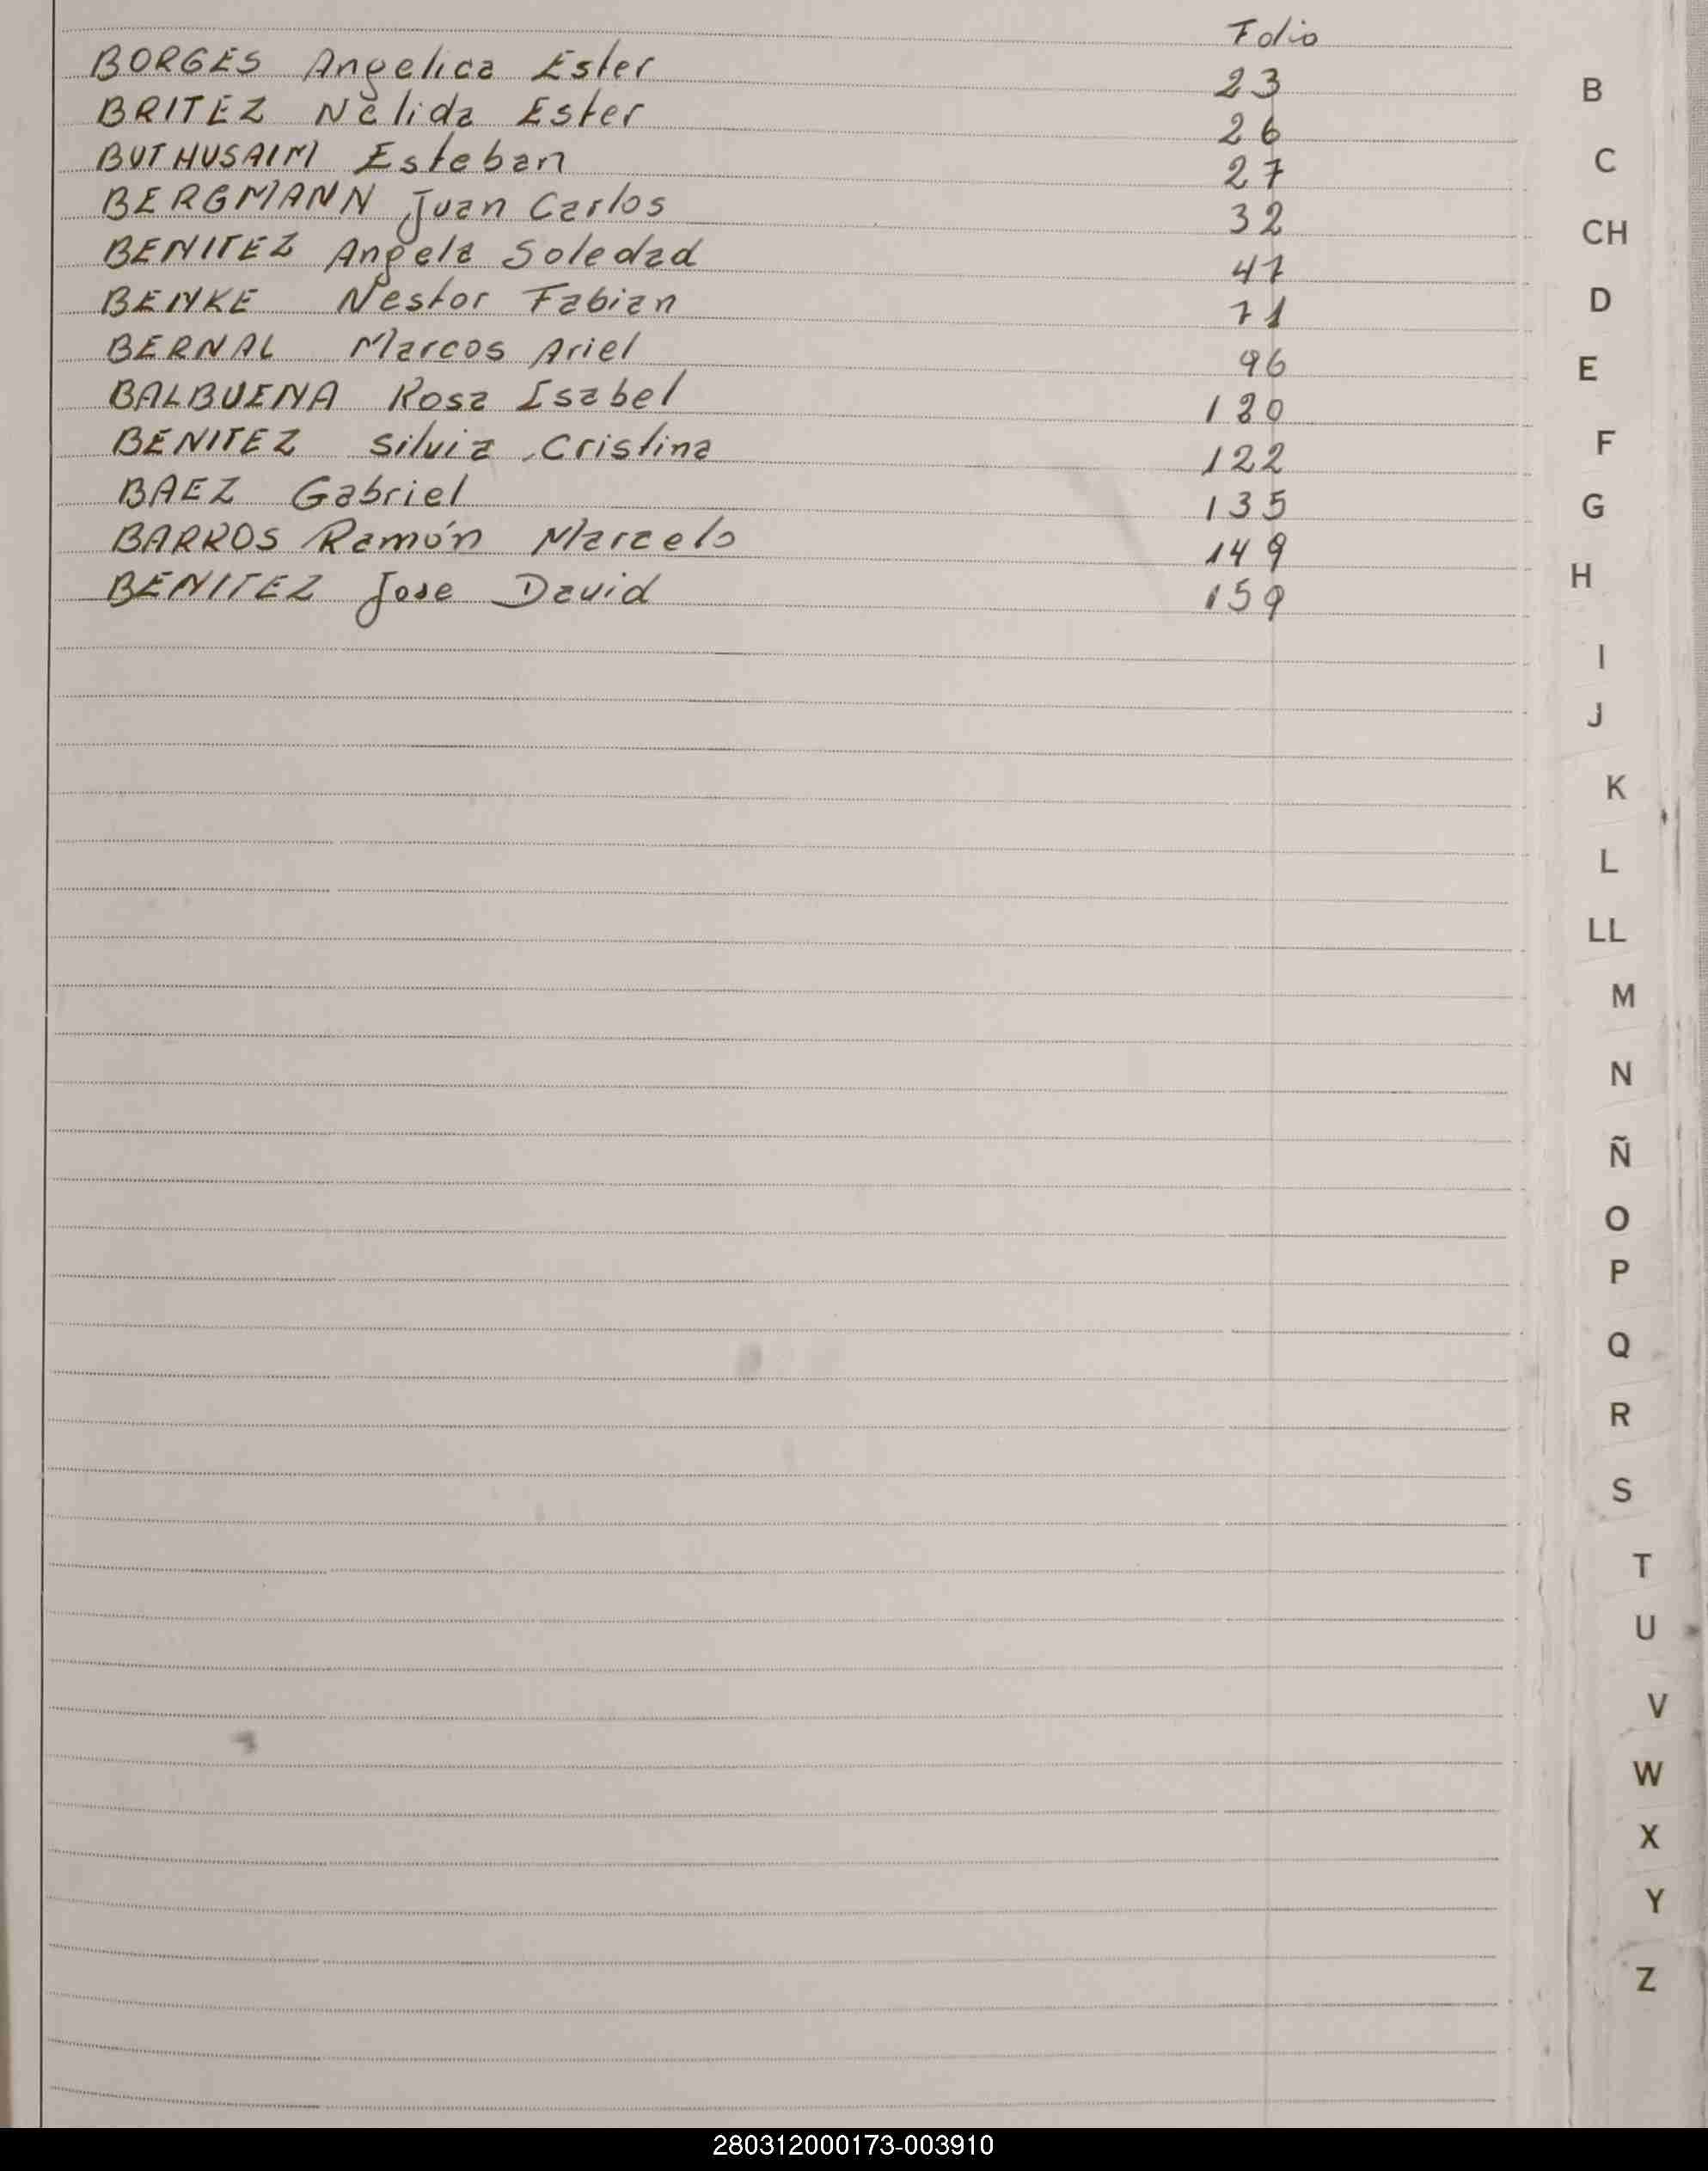 Folio
BORGES Angelica Ester 23
BRITEZ Nélida Ester 26
BUTHUSAIM Esteban 27
BERGMANN Juan Carlos 32
BENITEZ Angela Soledad 47
BENKE Nestor Fabian 71
BERNAL Marcos Ariel 96
BALBUENA Rosa Isabel 120
BENITEZ Silvia Cristina 122
BAEZ Gabriel 135
BARROS Ramón Marcelo 149
BENITEZ Jose David 159
B
C
CH
D
E
F
G
H
I
J
K
L
LL
M
N
Ñ
O
P
Q
R
S
T
U
V
W
X
Y
Z
280312000173-003910